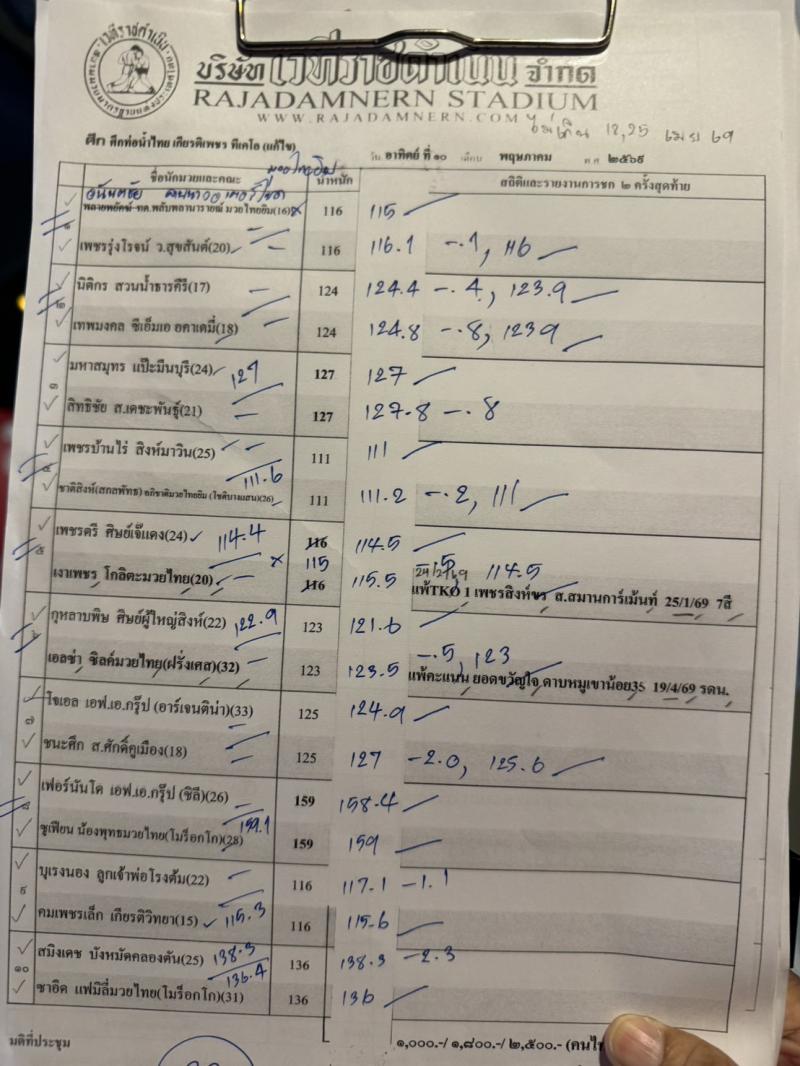 บริษัท เวทีราชดำเนิน จำกัด
RAJADAMNERN STADIUM
WWW.RAJADAMNERN.COM
12,25 เมย 69
ศึก ศึกท่อน้ำไทย เกียรติเพชร ทีเคโอ (แก้ไข)
วัน อาทิตย์ ที่ ๑๐ เดือน พฤษภาคม ค ศ ๒๕๖๙
ชื่อนักมวยและคณะ น้ำหนัก สถิติและรายงานการชก ๒ ครั้งสุดท้าย
มวยไทยยิม
๑ พลายพยัคฆ์ ทด.พลับพลานารายณ์ มวยไทยยิม(16) 116 115
เพชรรุ่งโรจน์ ว.สุขสันต์(20) 116 116.1 -.1, 116
๒ นิติกร สวนน้ำธารคีรี(17) 124 124.4 -.4, 123.9
เทพมงคล ซีเอ็มเอ อคาเดมี่(18) 124 124.8 -.8, 123.9
๓ มหาสมุทร แป๊ะมีนบุรี(24) 127 127 127
สิทธิชัย ส.เดชะพันธุ์(21) 127 127.8 -.8
๔ เพชรบ้านไร่ สิงห์มาวิน(25) 111 111
111.6
ชาติสิงห์(สกลพัทธ) อภิชาติมวยไทยยิม (โชติบางแสน)(26) 111 111.2 -.2, 111
๕ เพชรตรี ศิษย์เจ๊แดง(24) 114.4 116 114.5
115 -.5 114.5
เงาเพชร โกลิตะมวยไทย(20) 116 115.5
แพ้TKO 1 เพชรสิงห์ขร ส.สมานการ์เม้นท์ 25/1/69 7สี
๖ กุหลาบพิษ ศิษย์ผู้ใหญ่สิงห์(22) 122.9 123 121.6
-.5, 123
เอลซ่า ซิลค์มวยไทย(ฝรั่งเศส)(32) 123 123.5
แพ้คะแนน ยอดขวัญใจ ดาบหมูเขาน้อย35 19/4/69 รดน.
๗ โจเอล เอฟ.เอ.กรุ๊ป (อาร์เจนติน่า)(33) 125 124.9
ชนะศึก ส.ศักดิ์คูเมือง(18) 125 127 -2.0, 125.6
๘ เฟอร์นันโด เอฟ.เอ.กรุ๊ป (ชิลี)(26) 159 158.4
159.1
ซูเฟียน น้องพุทธมวยไทย(โมร็อกโก)(28) 159 159
๙ บุเรงนอง ลูกเจ้าพ่อโรงต้ม(22) 116 117.1 -1.1
คมเพชรเล็ก เกียรติวิทยา(15) 115.3 116 115.6
๑๐ สมิงเดช บังหมัดคลองตัน(25) 138.3 136 138.3 -2.3
136.4
ซาอิด แฟมิลี่มวยไทย(โมร็อกโก)(31) 136 136
มติที่ประชุม ๑,๐๐๐.-/ ๑,๘๐๐./ ๒,๕๐๐.-